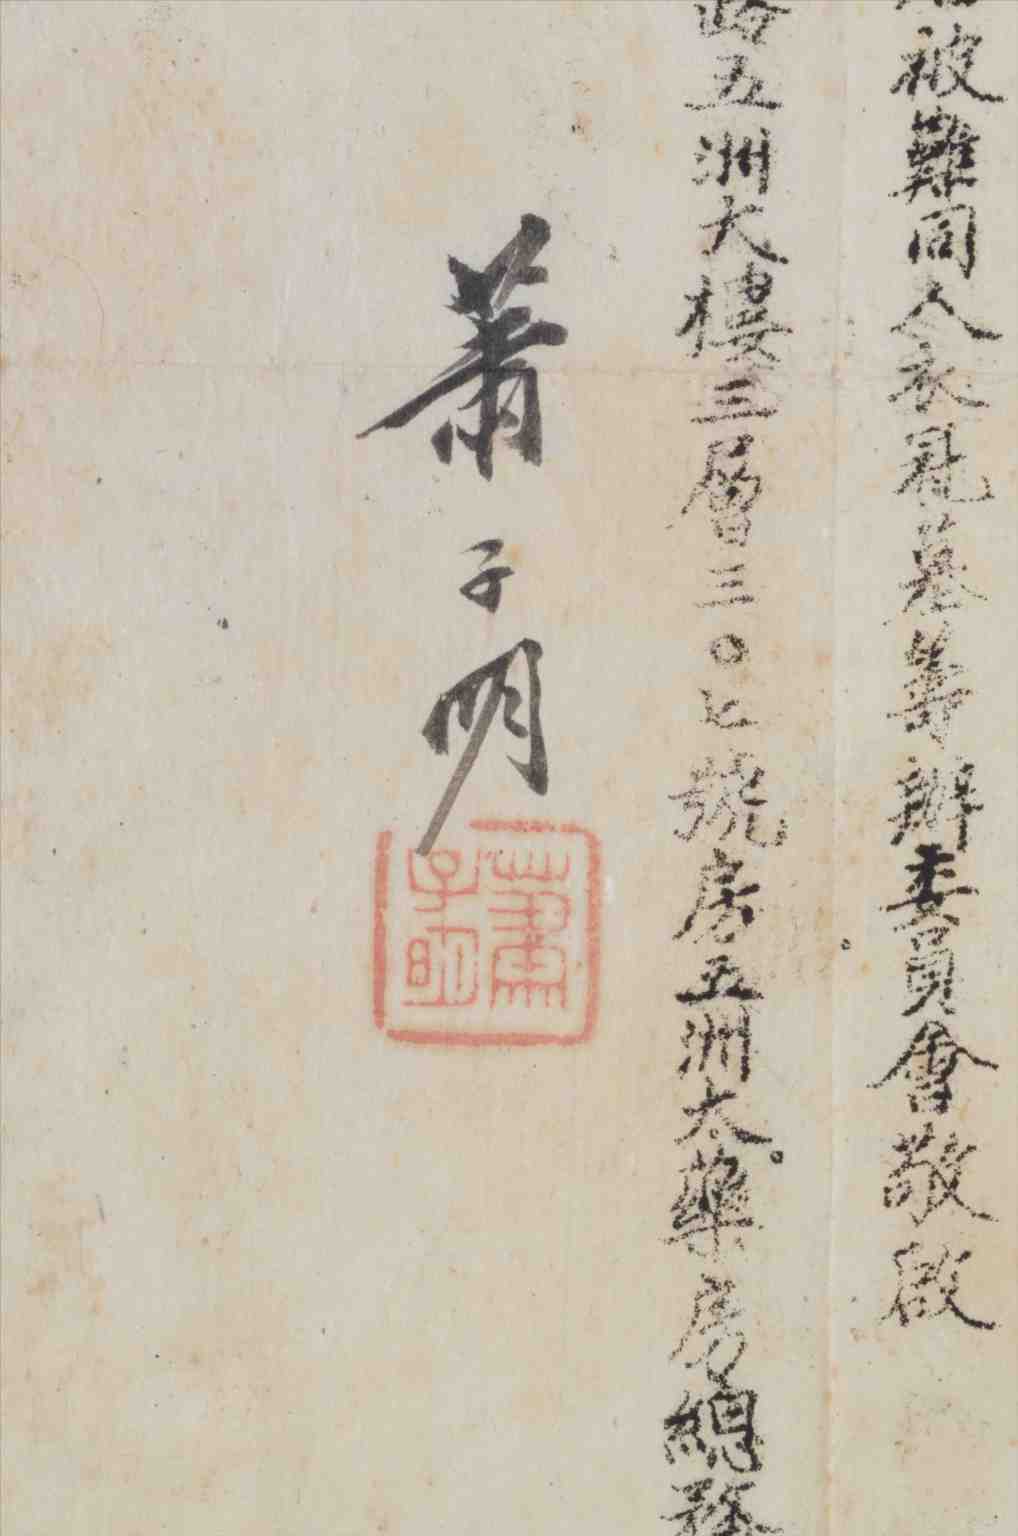 被難同人衣冠墓籌辦委員會敬啟
路五洲大樓三層三〇七號房五洲大藥房總務
蕭子明
蕭子明